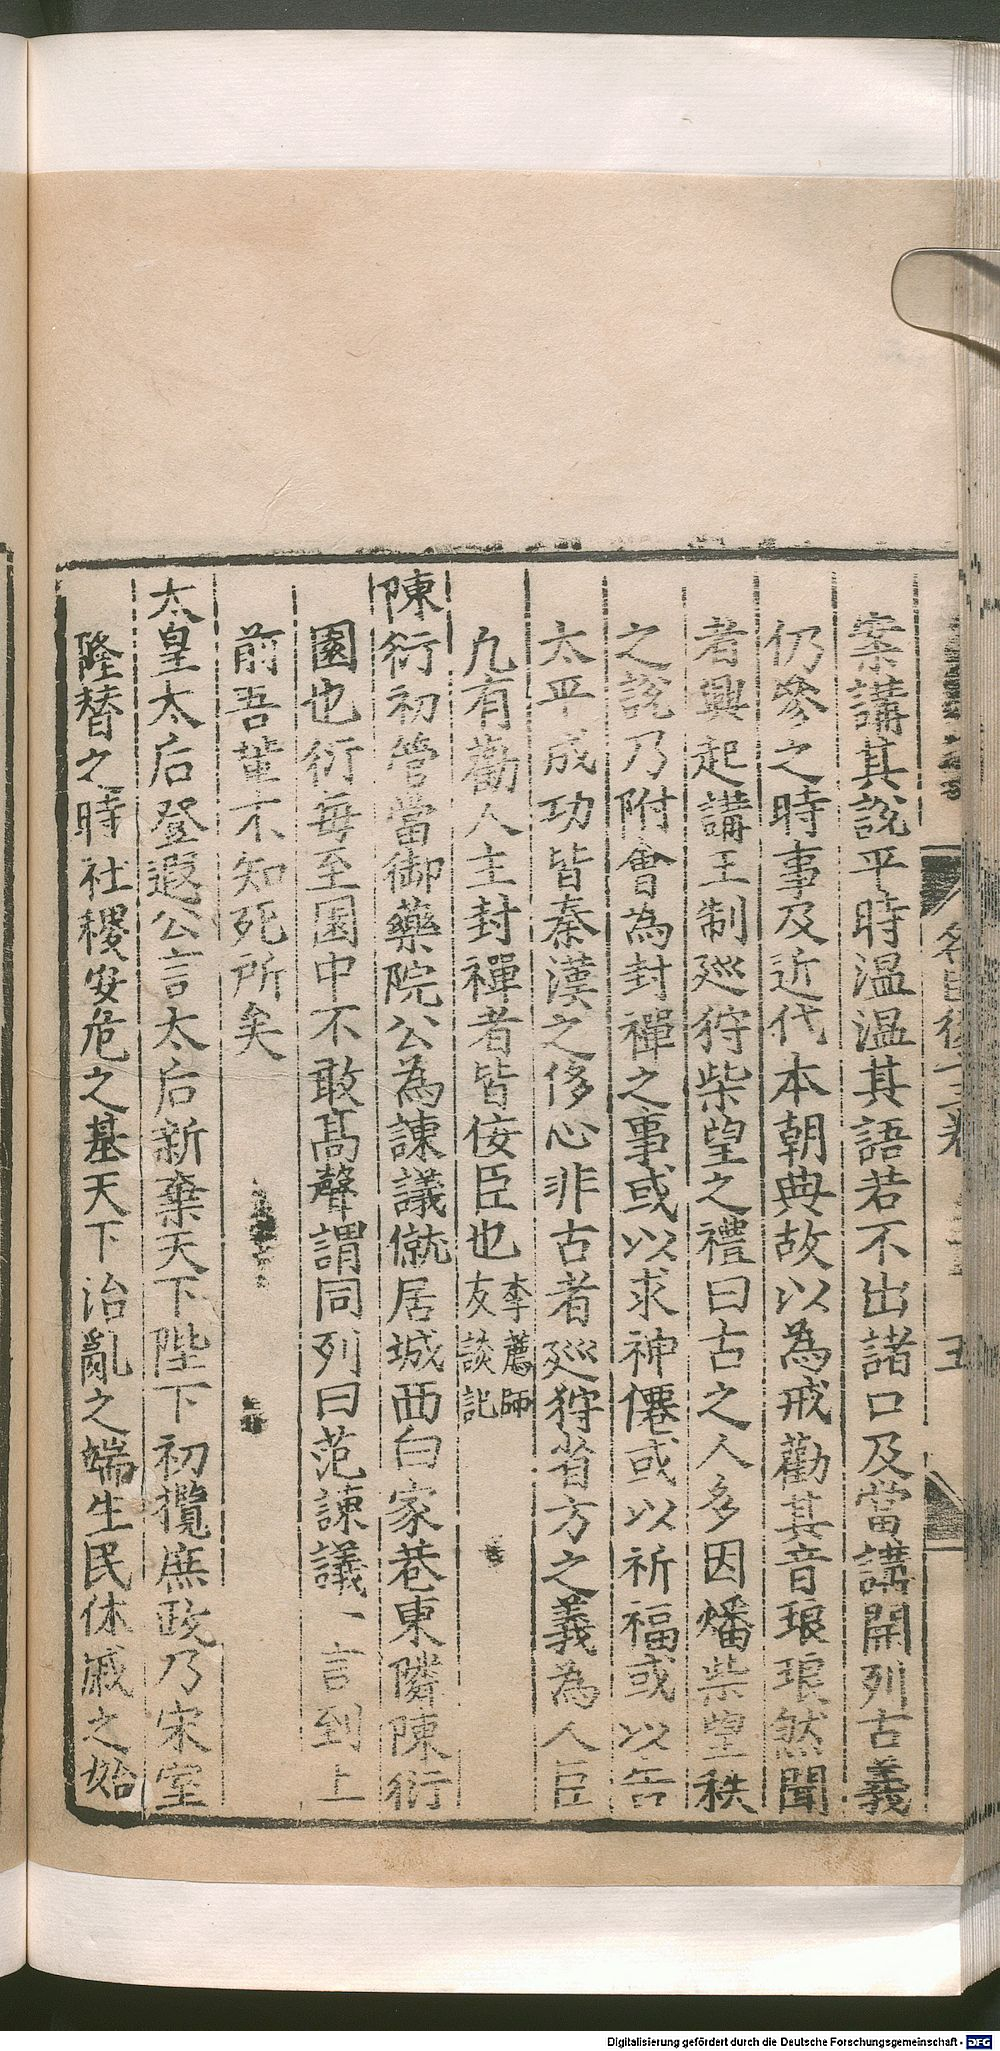 案講其說平時溫溫其語若不出諸口及當講開列古義
仍參之時事及近代本朝典故以為戒勸其音琅琅然聞
者興起講王制廵狩柴望之禮曰古之人多因燔柴望秩
之說乃附會為封禪之事或以求神僊或以祈福或以告
太平成功皆秦漢之侈心非古者廵狩省方之義為人臣
凢有勸人主封禪者皆佞臣也李薦師友談記
陳衍初管當御藥院公為諫議僦居城西白家巷東隣陳衍
園也衍每至園中不敢髙聲謂同列曰范諫議一言到上
前吾輩不知死所矣
太皇太后登遐公言太后新棄天下陛下初攬庶政乃宋室
隆替之時社稷安危之基天下治亂之端生民休戚之始
名臣後 卷
Digitalisierung gefördert durch die Deutsche Forschungsgemeinschaft - DFG